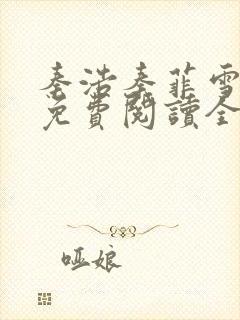 秦浩秦菲雪
免費閱讀全
哑娘